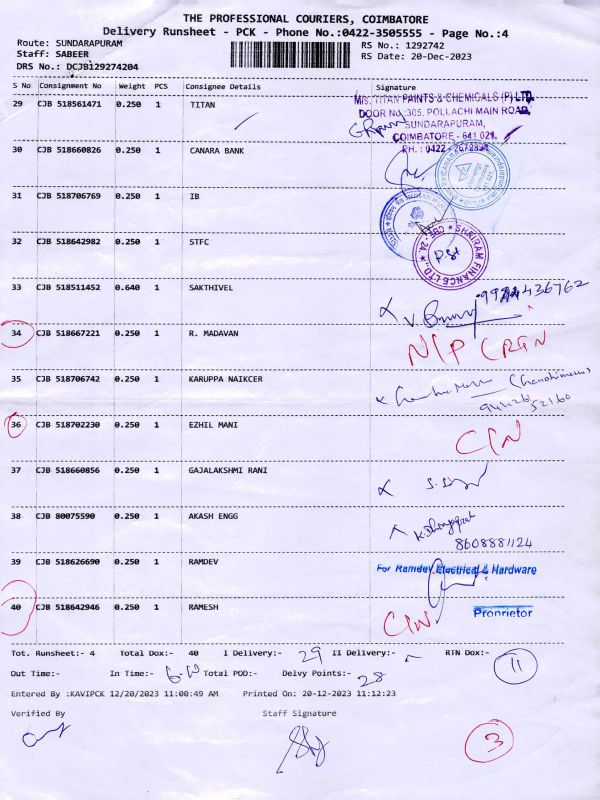 THE PROFESSIONAL COURIERS, COIMBATORE
Delivery Runsheet - PCK - Phone No.:0422-3505555 - Page No.:4
Route: SUNDARAPURAM
RS No.: 1292742
Staff: SABEER
RS Date: 20-Dec-2023
DRS No.: DCJB129274204
S No Consignment No Weight PCS Consignee Details Signature
29 CJB 518561471 0.250 1 TITAN
M/S. TITAN PAINTS & CHEMICALS (P) LTD.
DOOR NO:305, POLLACHI MAIN ROAD,
SUNDARAPURAM,
COIMBATORE - 641 021.
30 CJB 518660826 0.250 1 CANARA BANK
PH.: 0422 -
31 CJB 518706769 0.250 1 IB
32 CJB 518642982 0.250 1 STFC
SHRIRAM FINANCE LTD. CBE - 24
33 CJB 518511452 0.640 1 SAKTHIVEL
34 CJB 518667221 0.250 1 R. MADAVAN
N/P
35 CJB 518706742 0.250 1 KARUPPA NAIKCER
36 CJB 518702230 0.250 1 EZHIL MANI
37 CJB 518660856 0.250 1 GAJALAKSHMI RANI
38 CJB 80075590 0.250 1 AKASH ENGG
8608881124
39 CJB 518626690 0.250 1 RAMDEV
For Ramdev Electrical & Hardware
40 CJB 518642946 0.250 1 RAMESH
Proprietor
Tot. Runsheet:- 4 Total Dox:- 40 I Delivery:- 29 II Delivery:- RTN Dox:- 11
Out Time:- In Time:- Total POD:- Delvy Points:- 28
Entered By :KAVIPCK 12/20/2023 11:00:49 AM Printed On: 20-12-2023 11:12:23
Verified By Staff Signature
3